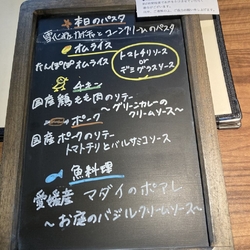 本日のパスタ
コーンクリームのパスタ
オムライス
たんぽぽオムライス
トマトチリソース
or
デミグラスソース
チキン
国産鶏もも肉のソテー
〜グリーンカレーの
クリームソース〜
ポーク
国産ポークのソテー
トマトチリとバルサミコソース
魚料理
愛媛産 マダイのポアレ
〜お庭のバジルクリームソース〜